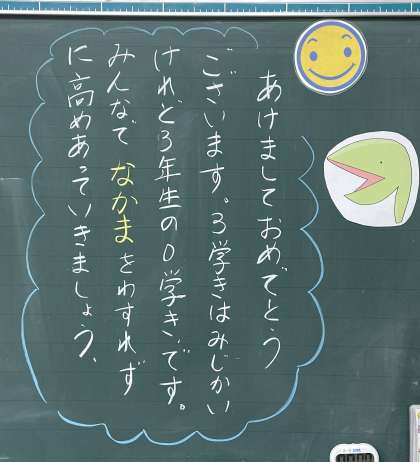 あけましておめでとう
ございます。3学きはみじかい
けれど3年生の0学きです。
みんなでなかまをわすれず
に高めあっていきましょう、